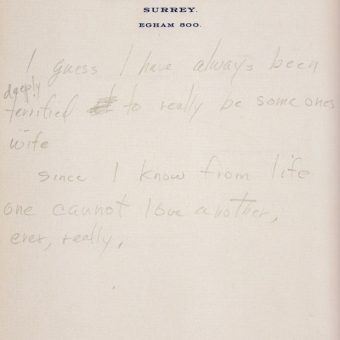 SURREY.
EGHAM 800.
I guess I have always been
deeply
terrified to really be someones
wife
since I know from life
one cannot love another,
ever, really,